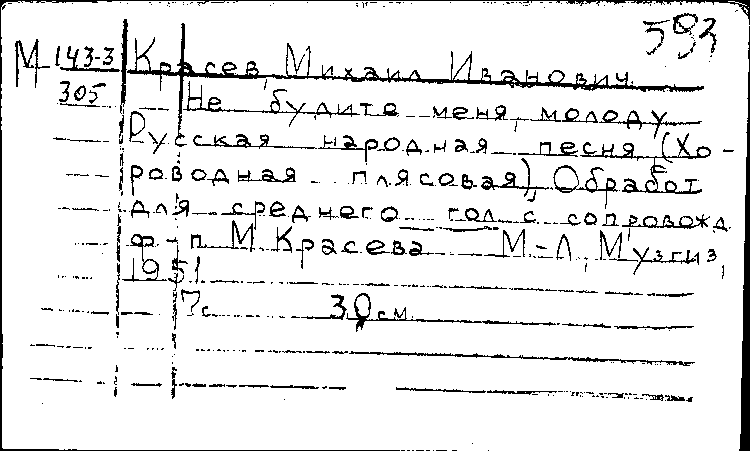 593
М 143-3 Красев, Михаил Иванович.
305 Не будите меня, молоду
Русская народная песня (Хо-
роводная плясовая), Обработ
для среднего гол с сопровожд
ф-п М Красева М-Л, Музгиз,
1951
7с 30 см